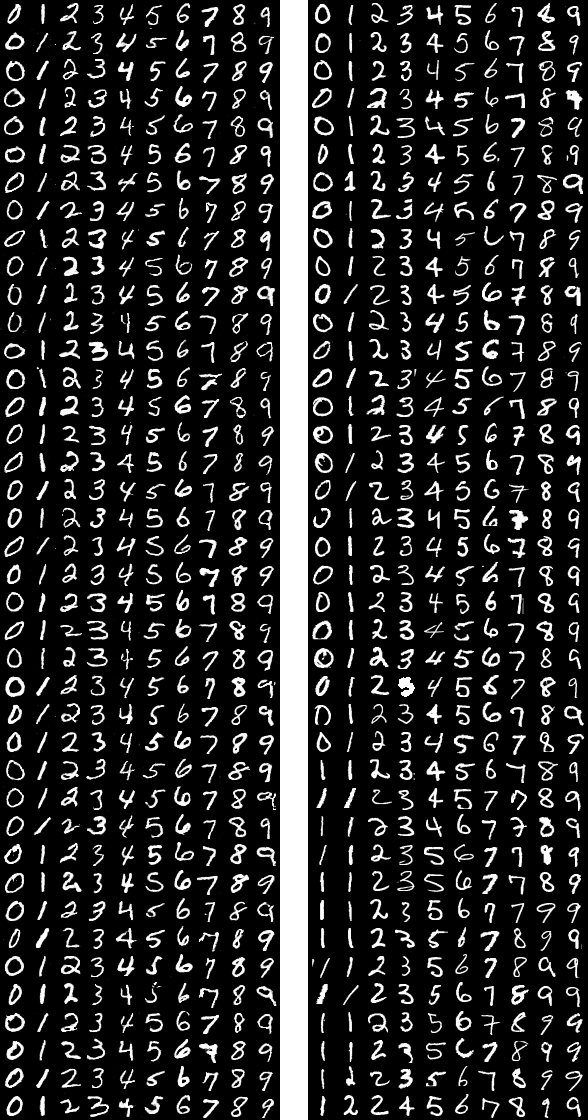 0 1 2 3 4 5 6 7 8 9
0 1 2 3 4 5 6 7 8 9
0 1 2 3 4 5 6 7 8 9
0 1 2 3 4 5 6 7 8 9
0 1 2 3 4 5 6 7 8 9
0 1 2 3 4 5 6 7 8 9
0 1 2 3 4 5 6 7 8 9
0 1 2 3 4 5 6 7 8 9
0 1 2 3 4 5 6 7 8 9
0 1 2 3 4 5 6 7 8 9
0 1 2 3 4 5 6 7 8 9
0 1 2 3 4 5 6 7 8 9
0 1 2 3 4 5 6 7 8 9
0 1 2 3 4 5 6 7 8 9
0 1 2 3 4 5 6 7 8 9
0 1 2 3 4 5 6 7 8 9
0 1 2 3 4 5 6 7 8 9
0 1 2 3 4 5 6 7 8 9
0 1 2 3 4 5 6 7 8 9
0 1 2 3 4 5 6 7 8 9
0 1 2 3 4 5 6 7 8 9
0 1 2 3 4 5 6 7 8 9
0 1 2 3 4 5 6 7 8 9
0 1 2 3 4 5 6 7 8 9
0 1 2 3 4 5 6 7 8 9
0 1 2 3 4 5 6 7 8 9
0 1 2 3 4 5 6 7 8 9
0 1 2 3 4 5 6 7 8 9
0 1 2 3 4 5 6 7 8 9
0 1 2 3 4 5 6 7 8 9
0 1 2 3 4 5 6 7 8 9
0 1 2 3 4 5 6 7 8 9
0 1 2 3 4 5 6 7 8 9
0 1 2 3 4 5 6 7 8 9
0 1 2 3 4 5 6 7 8 9
0 1 2 3 4 5 6 7 8 9
0 1 2 3 4 5 6 7 8 9
0 1 2 3 4 5 6 7 8 9
0 1 2 3 4 5 6 7 8 9
0 1 2 3 4 5 6 7 8 9
0 1 2 3 4 5 6 7 8 9
0 1 2 3 4 5 6 7 8 9
0 1 2 3 4 5 6 7 8 9
0 1 2 3 4 5 6 7 8 9
0 1 2 3 4 5 6 7 8 9
0 1 2 3 4 5 6 7 8 9
0 1 2 3 4 5 6 7 8 9
0 1 2 3 4 5 6 7 8 9
0 1 2 3 4 5 6 7 8 9
0 1 2 3 4 5 6 7 8 9
0 1 2 3 4 5 6 7 8 9
0 1 2 3 4 5 6 7 8 9
0 1 2 3 4 5 6 7 8 9
0 1 2 3 4 5 6 7 8 9
0 1 2 3 4 5 6 7 8 9
0 1 2 3 4 5 6 7 8 9
0 1 2 3 4 5 6 7 8 9
0 1 2 3 4 5 6 7 8 9
0 1 2 3 4 5 6 7 8 9
0 1 2 3 4 5 6 7 8 9
0 1 2 3 4 5 6 7 8 9
0 1 2 3 4 5 6 7 8 9
0 1 2 3 4 5 6 7 8 9
0 1 2 3 4 5 6 7 8 9
0 1 2 4 5 6 7 8 9
0 1 2 3 4 5 6 7 8 9
0 1 2 3 4 5 6 7 8 9
1 1 2 3 4 5 6 7 8 9
1 1 2 3 4 5 7 7 8 9
1 1 2 3 4 6 7 7 8 9
1 1 2 3 5 6 7 7 8 9
1 1 2 3 5 6 7 7 8 9
1 1 2 3 5 6 7 7 9 9
1 1 2 3 5 6 7 8 9 9
1 1 2 3 5 6 7 8 9 9
1 1 2 3 5 6 7 8 9 9
1 1 2 3 5 6 7 8 9 9
1 1 2 3 5 6 7 8 9 9
1 2 2 3 5 6 7 8 9 9
1 2 2 4 5 6 7 8 9 9